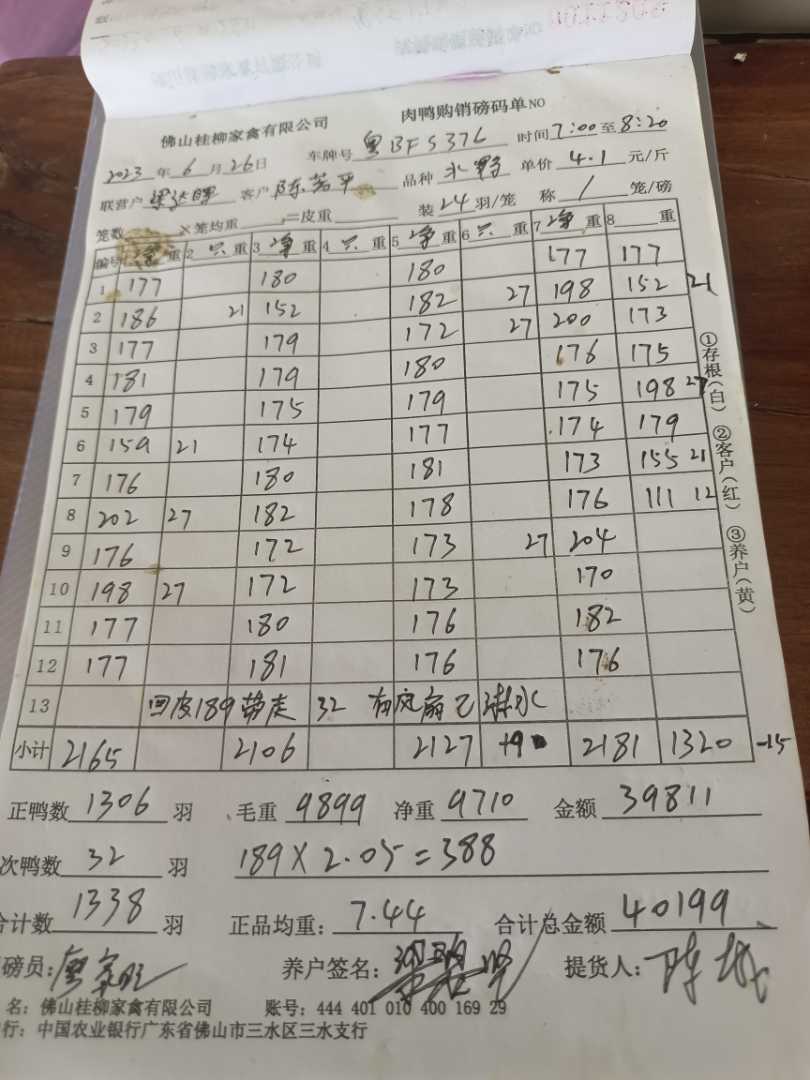 佛山桂柳家禽有限公司 肉鸭购销磅码单NO
2023年6月26日 车牌号 粤BFS376 时间7:00至8:20
联营户 客户 陈若平 品种 水鸭 单价 4.1 元/斤
笼数 ×笼均重 =皮重 装24羽/笼 称 1 笼/磅
编号 重 2 只重 3 净重 4 只重 5 净重 6 只重 7 净重 8 重
1 177 180 180 177 177
2 186 21 152 182 27 198 152 21
3 177 179 172 27 200 173
4 181 179 180 176 175
5 179 175 179 175 198 27
6 159 21 174 177 174 179
7 176 180 181 173 155 21
8 202 27 182 178 176 111 12
9 176 172 173 27 204
10 198 27 172 173 170
11 177 180 176 182
12 177 181 176 176
13 回皮189带走 32 有风扇已淋水
小计 2165 2106 2127 +9 2181 1320 -15
正鸭数 1306 羽 毛重 9899 净重 9710 金额 39811
次鸭数 32 羽 189×2.05=388
合计数 1338 羽 正品均重: 7.44 合计总金额 40199
磅员: 养户签名: 提货人:
名: 佛山桂柳家禽有限公司 账号: 444 401 010 400 169 29
行: 中国农业银行广东省佛山市三水区三水支行
①存根(白) ②客户(红) ③养户(黄)